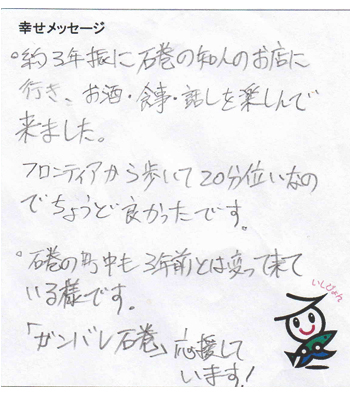 幸せメッセージ
°約3年振に石巻の知人のお店に
行き、お酒・食事・話しを楽しんで
来ました。
フロンティアから歩いて20分位いなの
でちょうど良かったです。
°石巻の町中も3年前とは変って来て
いる様です。
「ガンバレ石巻」応援して
います!
いしぴょん